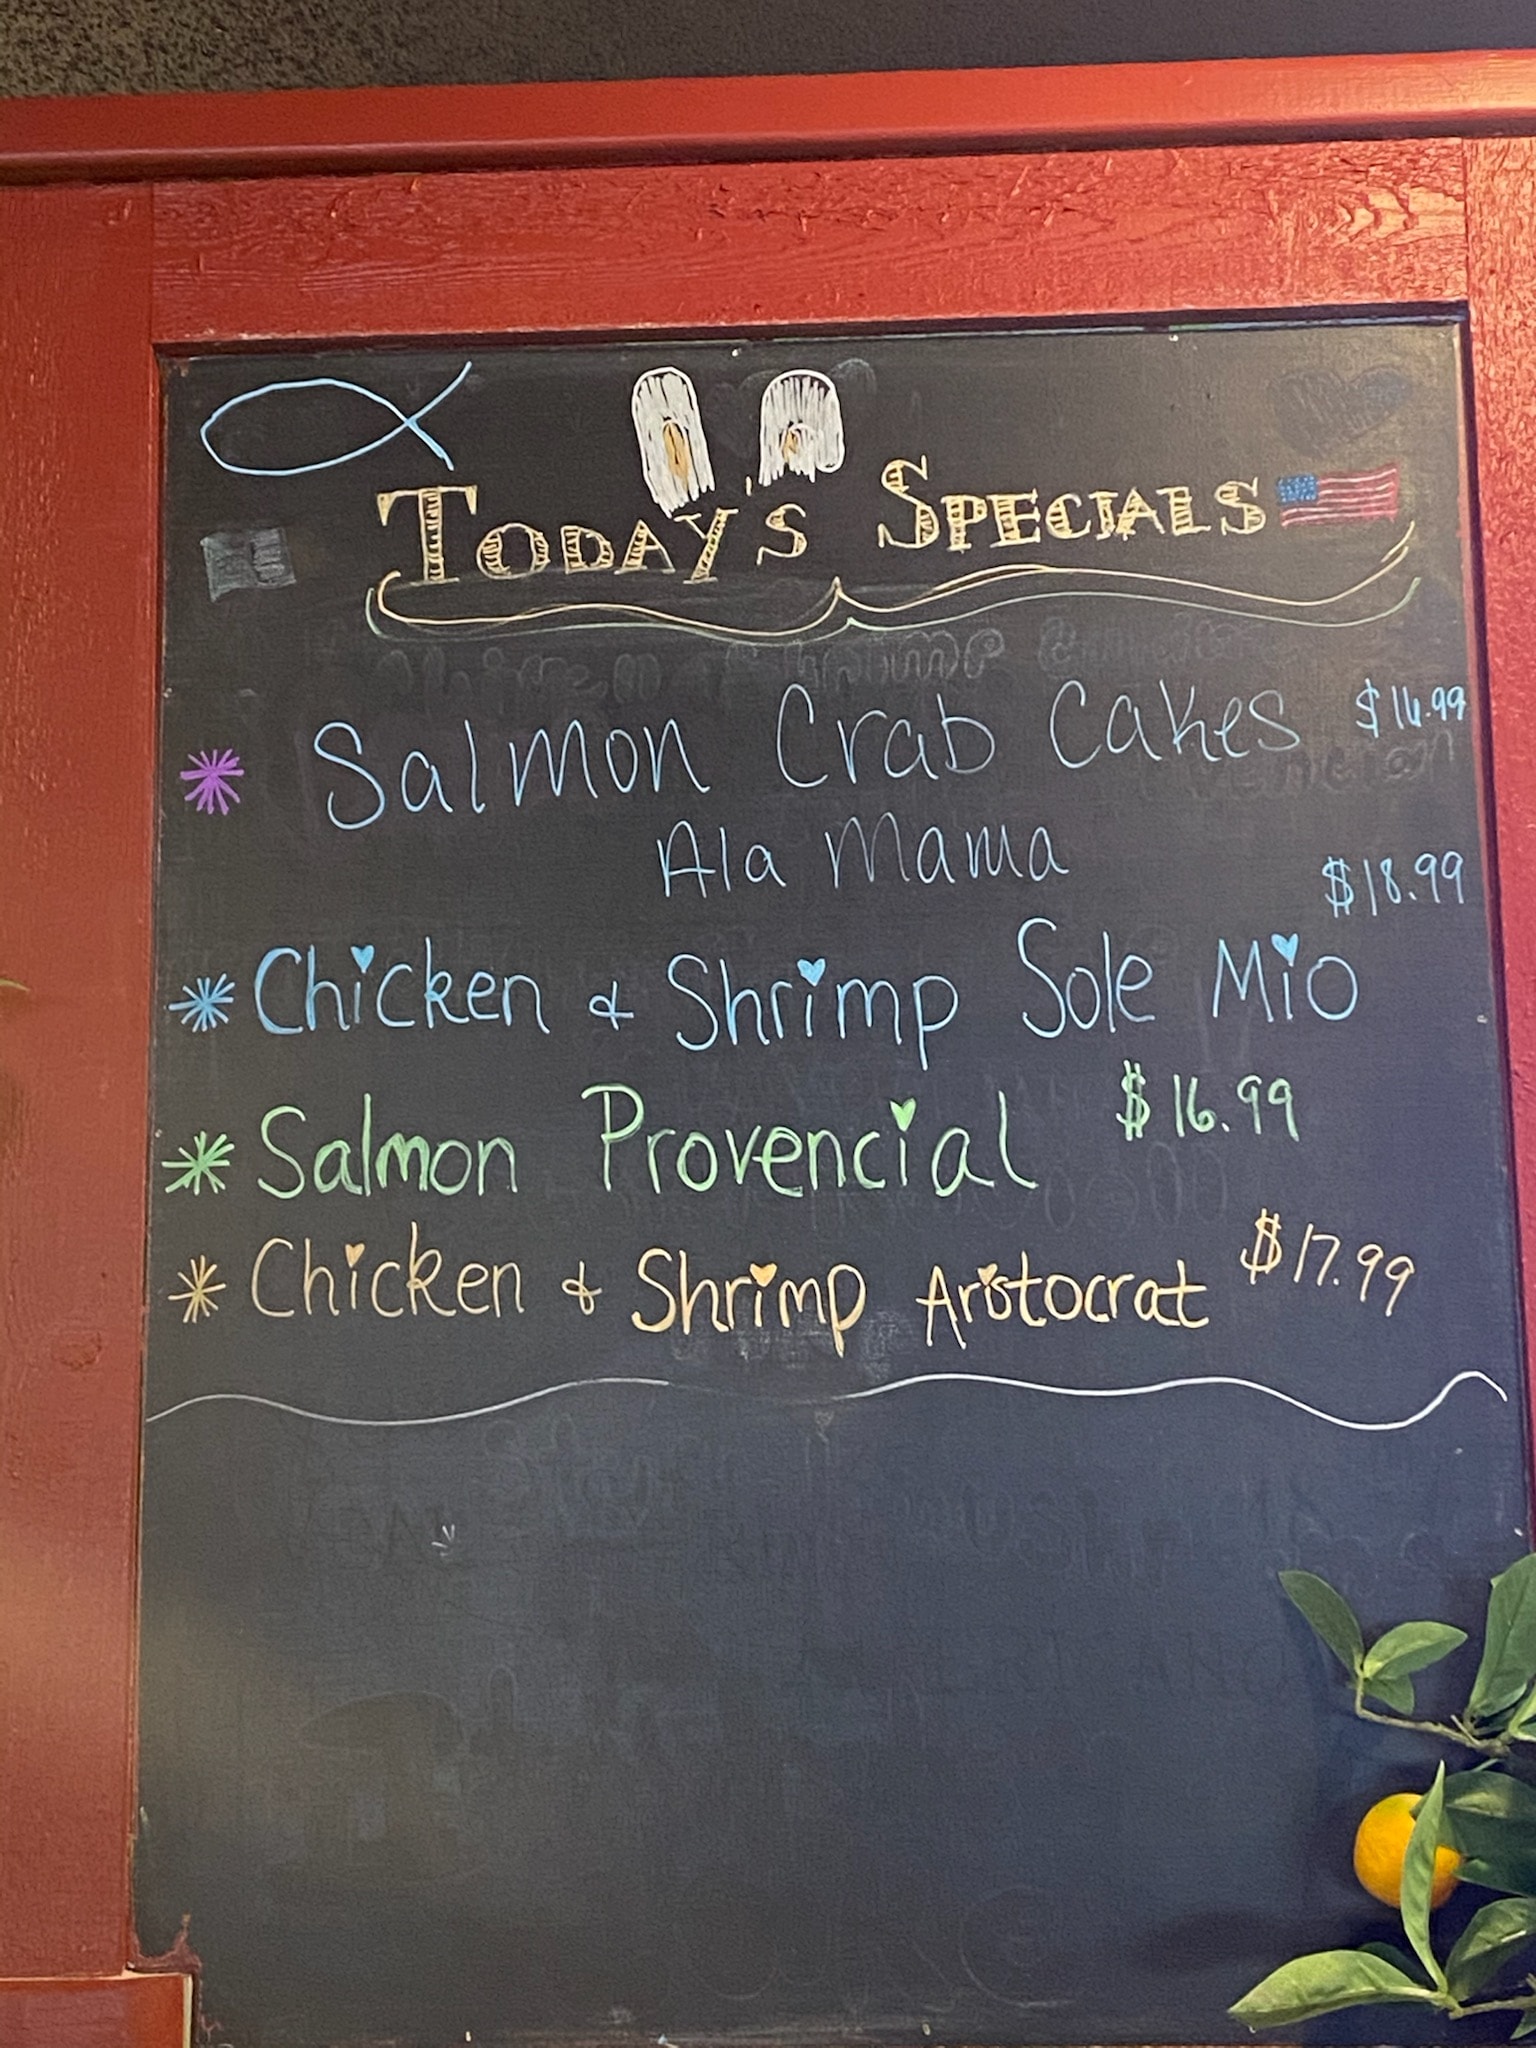 Today's Specials
Salmon Crab Cakes $16.99
Ala Mama
$18.99
Chicken & Shrimp Sole Mio
Salmon Provencial $16.99
Chicken & Shrimp Aristocrat $17.99